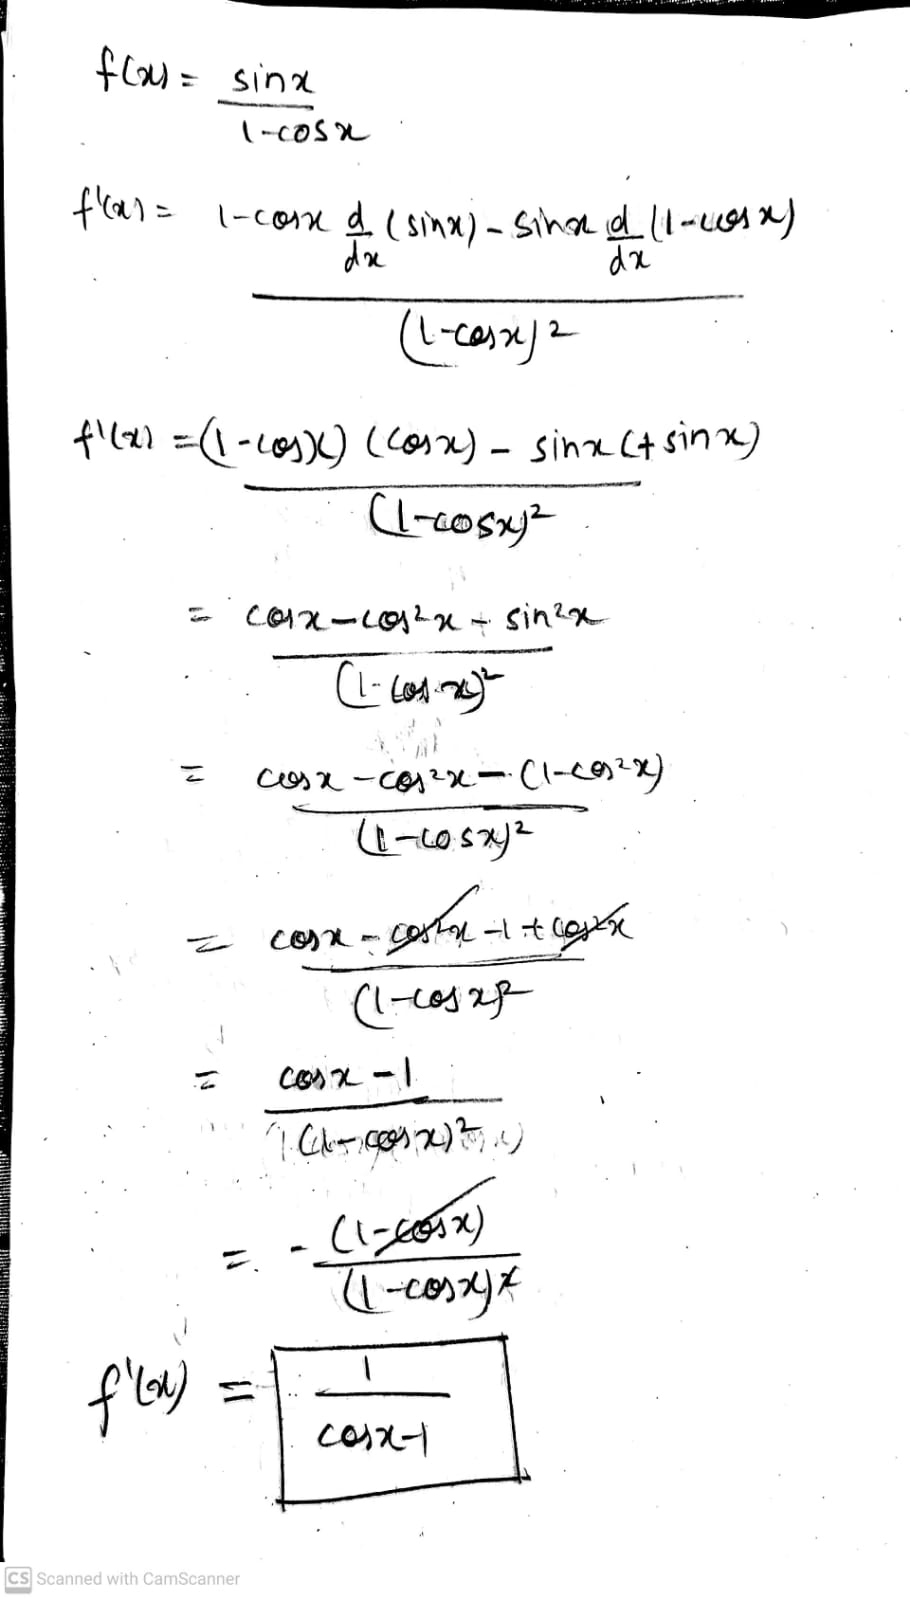 f(x) = sinx
1-cosx
f'(x) = 1-cosx d (sinx) - sinx d (1-cosx)
dx dx
(1-cosx)²
f'(x) = (1-cosx) (cosx) - sinx (+ sinx)
(1-cosx)²
= cosx - cos²x - sin²x
(1-cosx)²
= cosx - cos²x - (1-cos²x)
(1-cosx)²
= cosx - cos²x - 1 + cos²x
(1-cosx)²
= cosx - 1
(1-cosx)²
= - (1-cosx)
(1-cosx)²
f'(x) = 1
cosx-1
CS Scanned with CamScanner